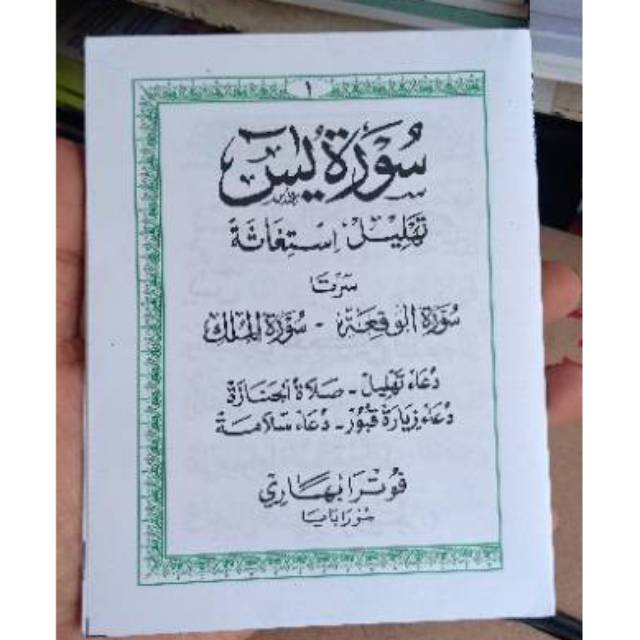 ١
سُورَة يٰسٓ
تَهْلِيل اِسْتِغَاثَة
سرتا
سُورَة الوقعَة - سُورَة المُلك
دُعَاء تَهْلِيل - صَلَاة الجنَازَة
دُعَاء زِيَارَة قُبُوْر - دُعَاء سَلَامَة
فوترا بهاري
سورابايا